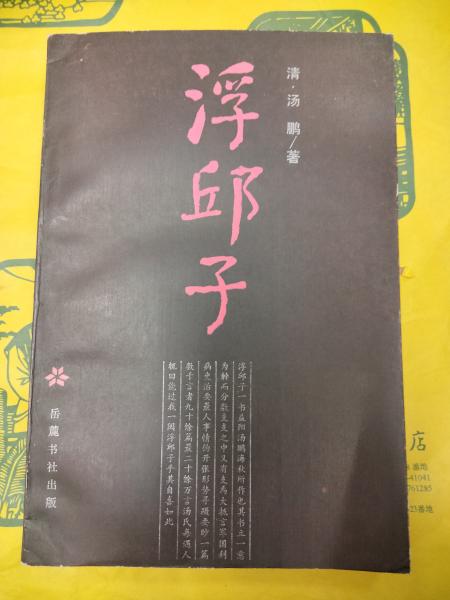 清·汤 鹏/著
浮邱子
浮邱子一书益阳汤鹏海秋所作也其书立一意
为幹而分数支支之中又有支焉大抵言军国利
病吏治要最人事情伪开张形势寻躡要眇一篇
数千言者九十馀篇最二十馀万言汤氏每遇人
辄曰能过我一阅浮邱子乎其自喜如此
岳麓书社出版
店
8番地
-41041
761285
-23番地